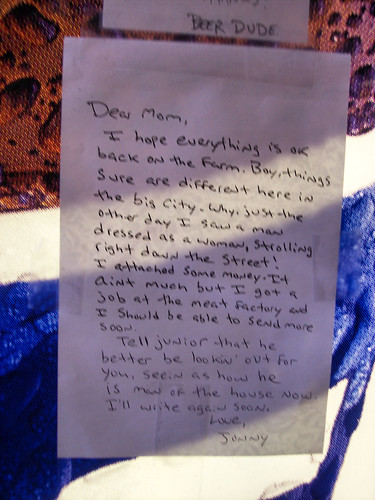 BEER DUDE
Dear Mom,
I hope everything is ok
back on the Farm. Boy, things
sure are different here in
the big City. Why, just the
other day I saw a man
dressed as a woman, strolling
right down the street!
I attached some money. It
aint much but I got a
job at the meat factory and
I should be able to send more
soon.
Tell junior that he
better be lookin' out for
you, seein as how he
is man of the house now.
I'll write again soon.
Love,
Jonny